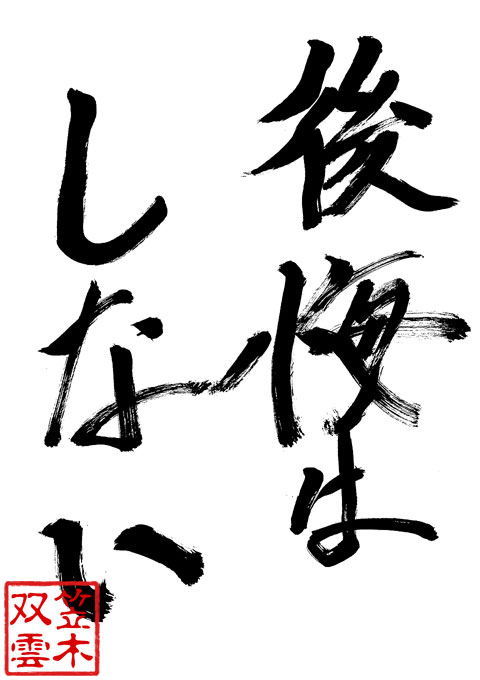 後悔は
しない
笠木
双雲